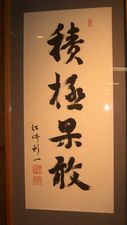 積極果敢
江崎利一